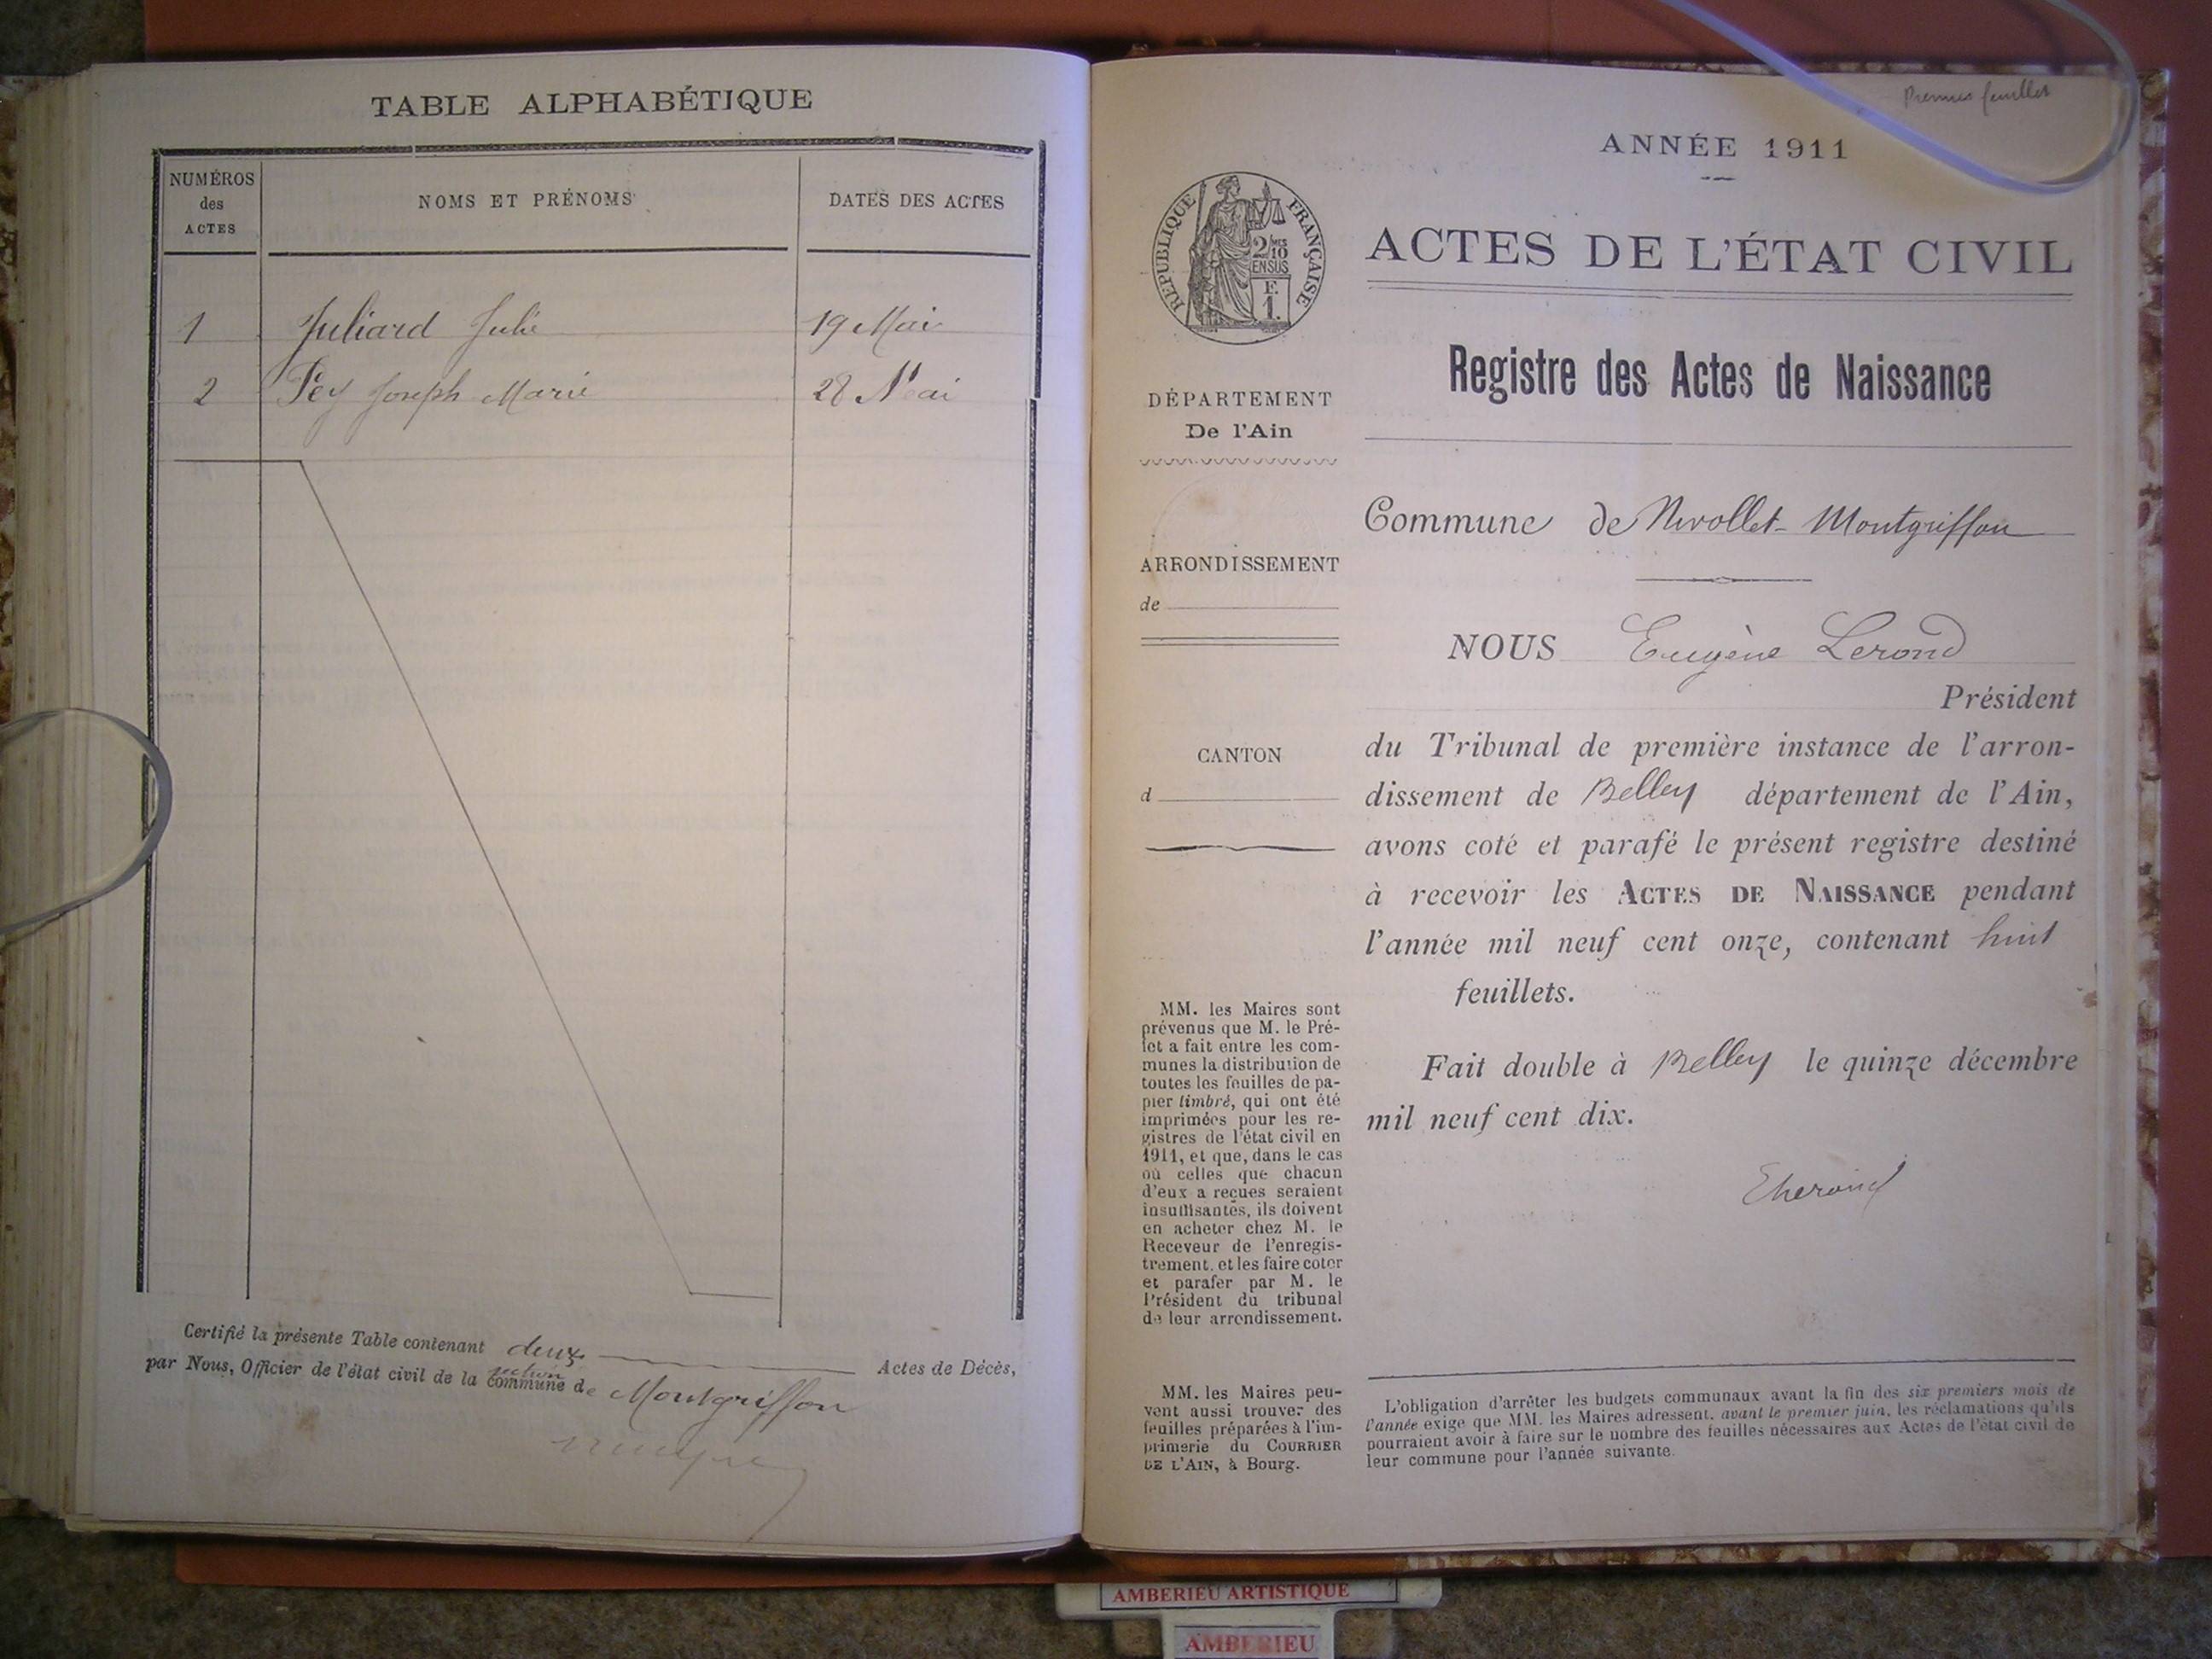 TABLE ALPHABÉTIQUE
NUMÉROS
des
ACTES
NOMS ET PRÉNOMS
DATES DES ACTES
1 Juliard Julie 19 Mai
2 Pey Joseph Marie 28 Mai
Certifié la présente Table contenant deux Actes de Décès,
section
par Nous, Officier de l'état civil de la commune de Montgriffon
Premier feuillet
ANNÉE 1911
ACTES DE L'ÉTAT CIVIL
Registre des Actes de Naissance
RÉPUBLIQUE FRANÇAISE
2/10 MES
EN SUS
F.
1.
DÉPARTEMENT
De l'Ain
ARRONDISSEMENT
de
CANTON
d
MM. les Maires sont
prévenus que M. le Pré-
fet a fait entre les com-
munes la distribution de
toutes les feuilles de pa-
pier timbré, qui ont été
imprimées pour les re-
gistres de l'état civil en
1911, et que, dans le cas
où celles que chacun
d'eux a reçues seraient
insuffisantes, ils doivent
en acheter chez M. le
Receveur de l'enregis-
trement, et les faire coter
et parafer par M. le
Président du tribunal
de leur arrondissement.
MM. les Maires peu-
vent aussi trouver des
feuilles préparées à l'im-
primerie du COURRIER
DE L'AIN, à Bourg.
Commune de Nivollet-Montgriffon
NOUS Eugène Lerond
Président
du Tribunal de première instance de l'arron-
dissement de Belley département de l'Ain,
avons coté et parafé le présent registre destiné
à recevoir les ACTES DE NAISSANCE pendant
l'année mil neuf cent onze, contenant huit
feuillets.
Fait double à Belley le quinze décembre
mil neuf cent dix.
ELerond
L'obligation d'arrêter les budgets communaux avant la fin des six premiers mois de
l'année exige que MM. les Maires adressent, avant le premier juin, les réclamations qu'ils
pourraient avoir à faire sur le nombre des feuilles nécessaires aux Actes de l'état civil de
leur commune pour l'année suivante.
AMBERIEU ARTISTIQUE
AMBERIEU